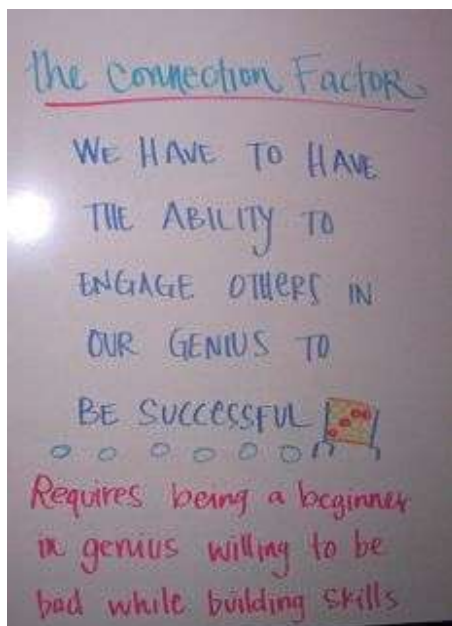 the Connection Factor
WE HAVE TO HAVE
THE ABILITY TO
ENGAGE OTHERS IN
OUR GENIUS TO
BE SUCCESSFUL
Requires being a beginner
in genius willing to be
bad while building skills